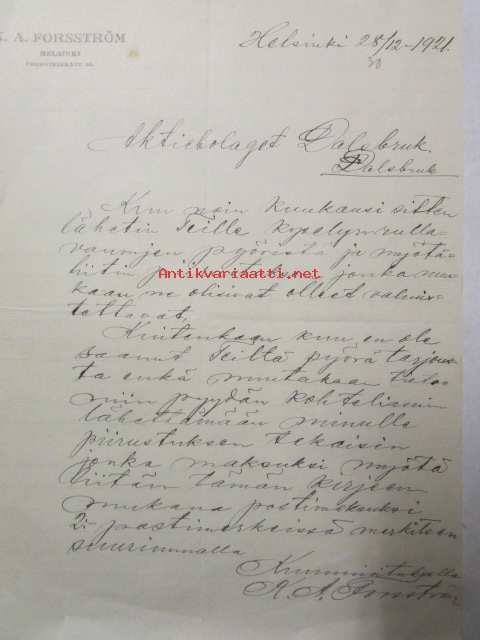 K. A. FORSSTRÖM
HELSINKI
Helsinki 28/12-1921.
30
Aktiebolaget Dalsbruk
Dalsbruk
Kun noin kuukausi sitten
lähetin Teille kyselyn rulla-
vaunujen pyöristä ja myötä-
liitin jonka mu-
kaan ne olisivat olleet valmis-
tettavat,
Kuitenkaan kun en ole
saanut Teiltä pyörä tarjous-
ta enkä muutakaan tietoa
niin pyydän kohteliaimmin
lähettämään minulle
piirustuksen takaisin
jonka maksuksi myötä
liitän tämän kirjeen
mukana postimaksuksi
2:- postimerkeissä merkiten
suurimmalla
Kunnioituksella
K. A. Forsström
Antikvariaatti.net